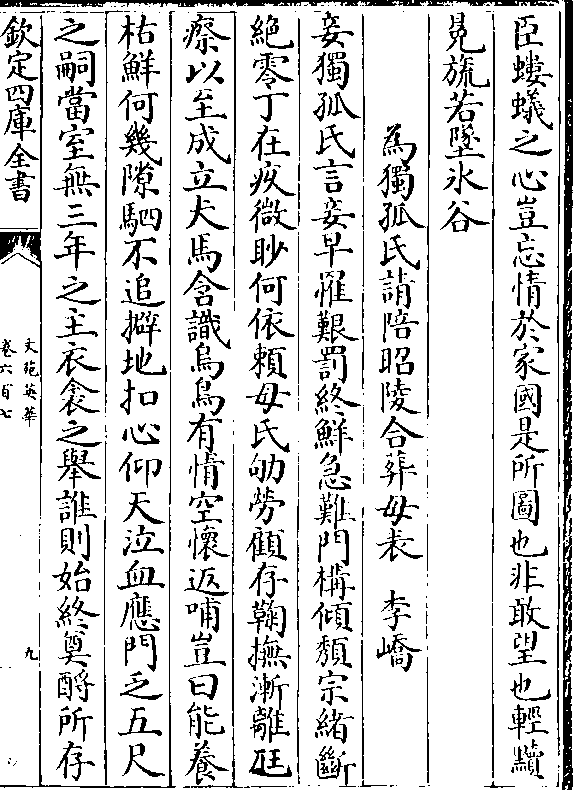 臣螻蟻之心豈忘情於家國是所圖也非敢望也輕黷
冕旒若墜氷谷
為獨孤氏請陪昭陵合葬母表　李嶠
妾獨孤氏言妾早罹艱罰終鮮急難門構傾頽宗緒斷
絶零丁在疚微眇何依賴母氏劬勞顧存鞠撫漸離尫
瘵以至成立犬馬含識烏鳥有情空懷返哺豈曰能養
枯鮮何幾隙駟不追擗地扣心仰天泣血應門乏五尺
之嗣當室無三年之主衣衾之舉誰則始終奠酹所存
欽定四庫全書
文苑英華
卷六百七
九